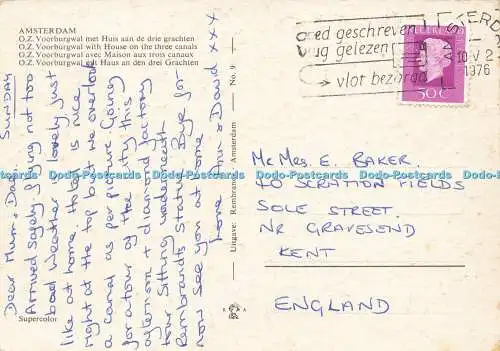 AMSTERDAM
O.Z. Voorburgwal met Huis aan de drie grachten
O.Z. Voorburgwal with House on the three canals
O.Z. Voorburgwal avec Maison aux trois canaux
O.Z. Voorburgwal mit Haus an den drei Grachten
SUNDAY
Dear Mum & Dad.
Arrived safely flying not too
bad weather is lovely just
like at home. Hotel is nice
right at the top but we overlook
a canal as per picture Going
for a tour of the city this
afternoon & diamond factory
tour Sitting underneath
Rembrandts Statue. Bye for
now see you at home
love &
David xxx
Supercolor
No. 9
Uitgave: Rembrandt Amsterdam
R A
goed geschreven
vlug gelezen
vlot bezorgd
10-V 2
1976
50c
Mr Mrs. E. BAKER.
70 SCRATTON FIELDS
SOLE STREET.
NR GRAVESEND
KENT
ENGLAND
Dodo-Postcards Dodo-Postcards Dodo-Postcards Dodo-Postcards Dodo-Postcards